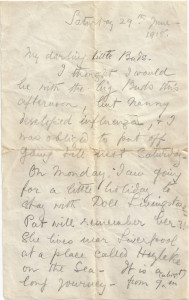 Saturday 29th June
1918.
My darling little Buds.
I thought I would
be with the big Buds this
afternoon, but Nanny
developed influenza, & I
was obliged to put off
going until next Saturday
On Monday I am going
for a little holiday to
stay with Doll Livingston
Pat will remember her.
She lives near Liverpool
at a place called Hoylake
on the Sea - It is
long journey - from 9 am